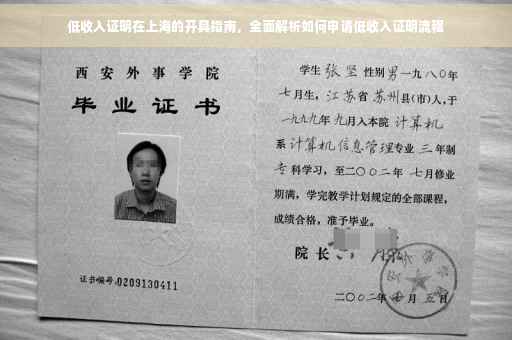 低收入证明在上海的开具指南，全面解析如何申请低收入证明流程
西安外事学院
毕业证书
证书编号:0209130411
学生 张坚 性别 男 一九八〇年
七月生，江苏省 苏州 县(市)人，于
一九九九年 九月入本院 计算机
系 计算机信息管理 专业 三 年制
专科学习，至二〇〇二年 七月修业
期满，学完教学计划规定的全部课程，
成绩合格，准予毕业。
院长
二〇〇二年 七 月 五 日